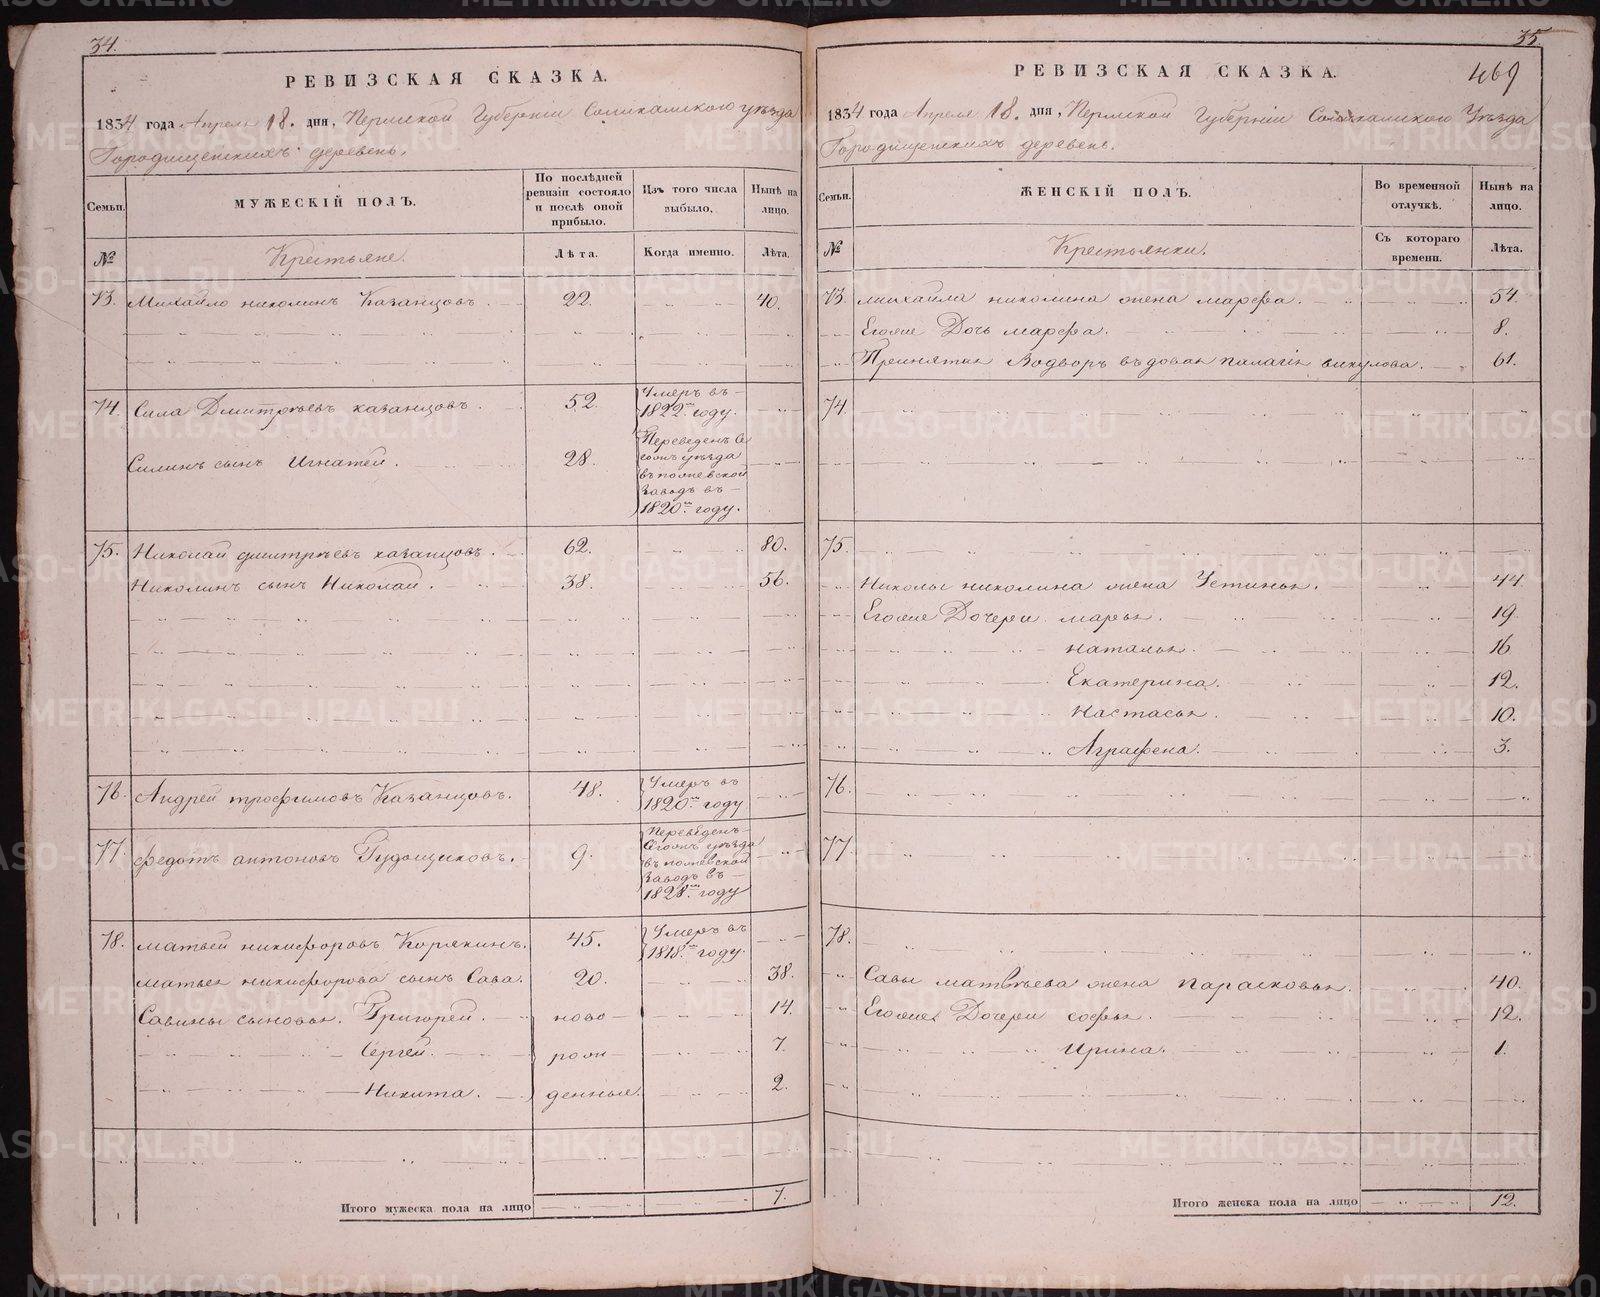 34.
РЕВИЗСКАЯ СКАЗКА.
1834 года Апреля 18. дня, Пермской Губерніи Соликамского уѣзда
Городищенскихъ деревень.
Семьи.
МУЖЕСКІЙ ПОЛЪ.
По послѣдней ревизіи состояло и послѣ оной прибыло.
Изъ того числа выбыло.
Нынѣ на лицо.
№
Крестьяне.
Лѣта.
Когда именно.
Лѣта.
73. Михайло николинъ Казанцовъ. 22. 40.
74. Сила Дмитрѣевъ казанцовъ. 52. Умеръ въ 1822м году.
Силинъ сынъ Игнатей. 28. Переведенъ Сегомъ уѣзда въ пожевской Заводъ въ 1820м году.
75. Николай дмитрѣевъ казанцовъ. 62. 80.
Николинъ сынъ Николай. 38. 56.
76. Андрей трофимовъ Казанцовъ. 48. Умеръ въ 1820м году
77. федотъ антоновъ Гудощиковъ. 9. Переведенъ Сегомъ уѣзда въ пожевской Заводъ въ 1828м году
78. матвей никифоровъ Корякинъ. 45. Умеръ въ 1818м году.
матвея никифорова сынъ Сава. 20. 38.
Савины сыновья. Григорей. ново 14.
Сергей. рож 7.
Никита. денные. 2.
Итого мужеска пола на лицо 7.
35.
469
РЕВИЗСКАЯ СКАЗКА.
1834 года Апреля 18. дня, Пермской Губерніи Соликамского Уѣзда
Городищенскихъ деревень.
Семьи.
ЖЕНСКІЙ ПОЛЪ.
Во временной отлучкѣ.
Нынѣ на лицо.
№
Крестьянки.
Съ котораго времени.
Лѣта.
73. михайла николина жена марфа. 54.
Егоже Дочь марфа. 8.
Принятая Водворъ въдовая палагія викулова. 61.
74.
75.
Николы николина жена Устинья. 44.
Егоже Дочери марья. 19.
наталья. 16.
Екатерина. 12.
Настасья. 10.
Аграфена. 3.
76.
77.
78.
Савы матвѣева жена парасковья. 40.
Егоже Дочери софья. 12.
Ирина. 1.
Итого женска пола на лицо 12.
METRIKI.GASO-URAL.RU